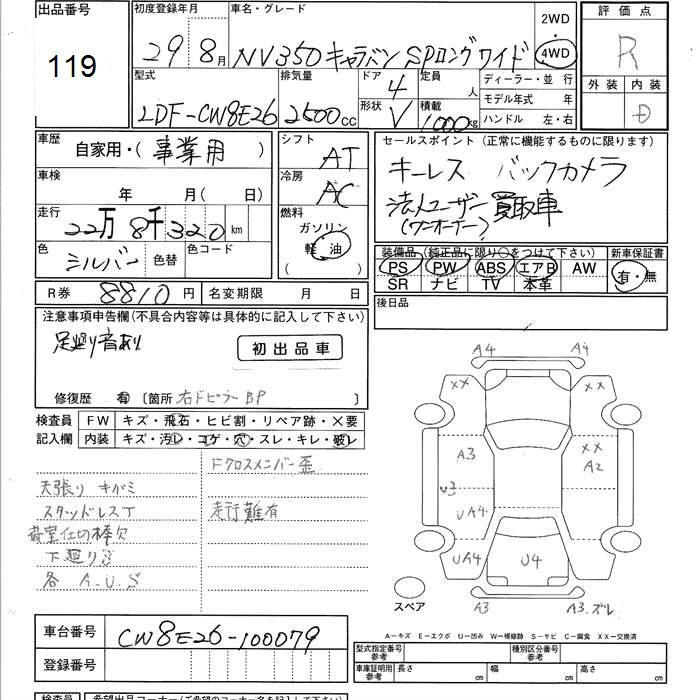 出品番号
119
初度登録年月
29 8月
車名・グレード
NV350 キャラバン SPロング ワイド
2WD
4WD
評価点
R
外装 内装
D
型式
LDF-CW8E26
排気量
2500cc
ドア
4
形状
V
定員
人
積載
1000kg
ディーラー・並 行
モデル年式 年
ハンドル 左・右
車歴
自家用・(事業用)
車検
年 月( 日)
走行
22万8千320km
色
シルバー
色替
色コード
シフト
AT
冷房
AC
燃料
ガソリン
軽油
セールスポイント (正常に機能するものに限ります)
キーレス バックカメラ
法人ユーザー買取車
(ワンオーナー)
装備品 (純正品に限り○をつけて下さい)
PS PW ABS エアB AW
SR ナビ TV 本革
新車保証書
有・無
R券 8810円
名変期限 月 日
後日品
注意事項申告欄(不具合内容等は具体的に記入して下さい)
足廻り音あり
初出品車
修復歴 有 〔箇所 右ドピラーBP 〕
検査員 FW キズ・飛石・ヒビ割・リペア跡・×要
記入欄 内装 キズ・汚れ・コゲ・穴・スレ・キレ・破レ
Fクロスメンバー歪
天張り キバミ
スタッドレスT
走行難有
荷室仕切棒欠
下廻りサビ
各 A.U.S
A4 A4
XX XX
A3 XX
A2
U3
UA4 UA4
U4
スペア
A3 A3.ズレ
A-キズ E-エクボ U-凹み W-補修跡 S-サビ C-腐食 XX-交換済
車台番号
CW8E26-100079
登録番号
型式指定番号
参考
種別区分番号
参考
車庫証明用
参考
長さ cm
幅 cm
高さ cm
検査員
希望出品コーナー(ご希望のコーナー名を記入下さい)